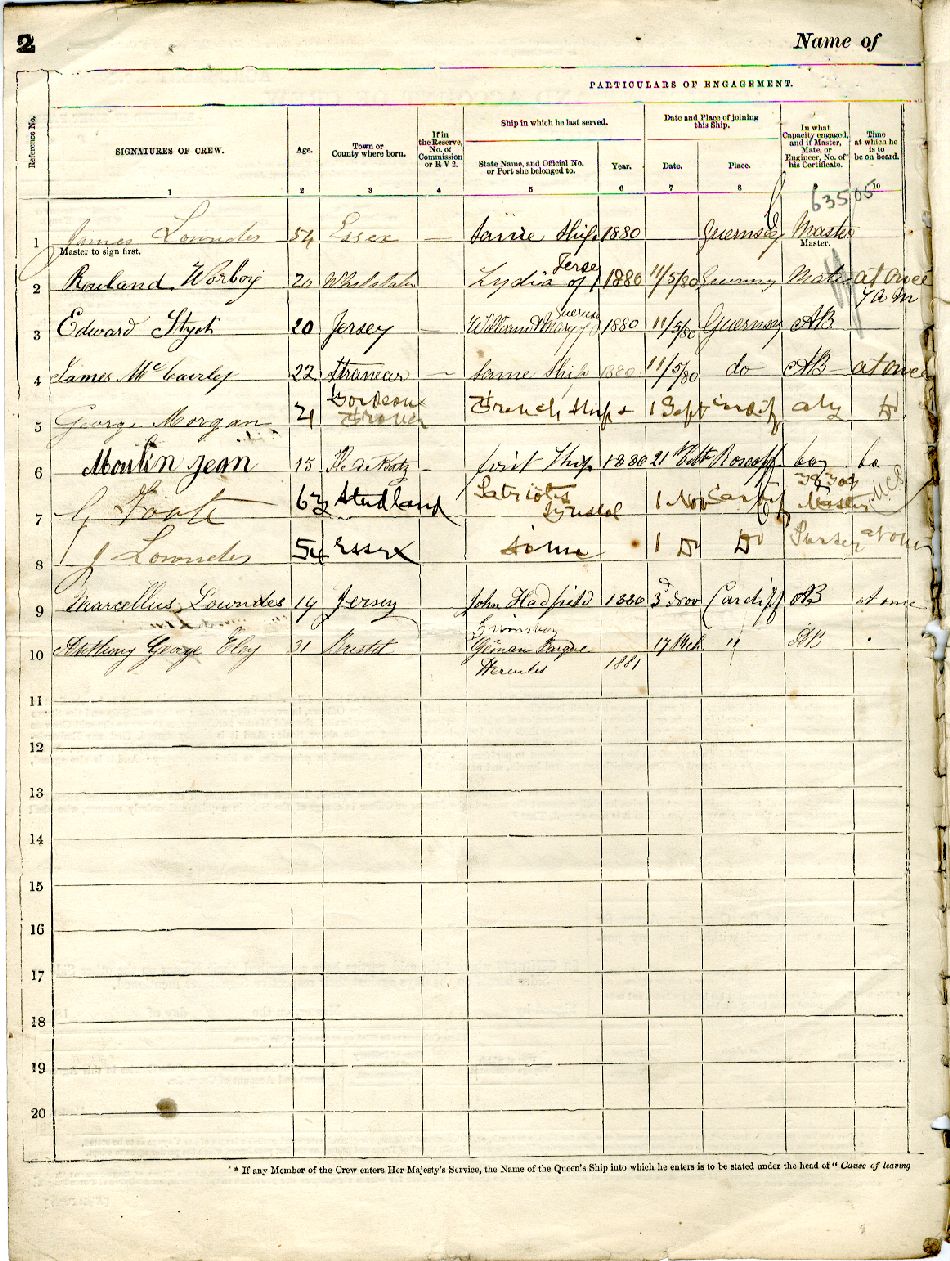 2 Name of
PARTICULARS OF ENGAGEMENT.
Reference No.
SIGNATURES OF CREW.
Age.
Town or
County where born.
If in
the Reserve,
No. of
Commission
or R V 2.
Ship in which he last served.
State Name, and Official No.
or Port she belonged to.
Year.
Date and Place of joining
this Ship.
Date.
Place.
In what
Capacity engaged,
and if Master,
Mate, or
Engineer, No. of
his Certificate.
Time
at which he
is to
be on board.
1 2 3 4 5 6 7 8 10
63505
1 James Lowndes 54 Essex — Same Ship 1880 Guernsey Master
Master to sign first.
Master.
2 Rowland Worboy 20 Lydia of Jersey 1880 11/5/80 Guernsey Mate at once
7 A M
3 Edward 20 Jersey — 1880 11/5/80 Guernsey AB
4 James McCairley 22 Stranraer — Same Ship 1880 11/5/80 do AB at once
5 George Morgan 21 French Ship 1 Sept Cardiff Do
6 Moulin Jean 15 — first Ship 1880 21 Roscoff boy
7 G 63 Studland 1 Nov Cardiff Master
8 J Lowndes 54 Essex Same 1 Do Do Purser at once
9 Marcellus Lowndes 19 Jersey John Hadfield 1880 3d Nov Cardiff AB at once
10 Anthony George Eloy 31 Bristol Grimsby
German
Hercules 1881 17 Mch " AB
11
12
13
14
15
16
17
18
19
20
* If any Member of the Crew enters Her Majesty's Service, the Name of the Queen's Ship into which he enters is to be stated under the head of "Cause of leaving